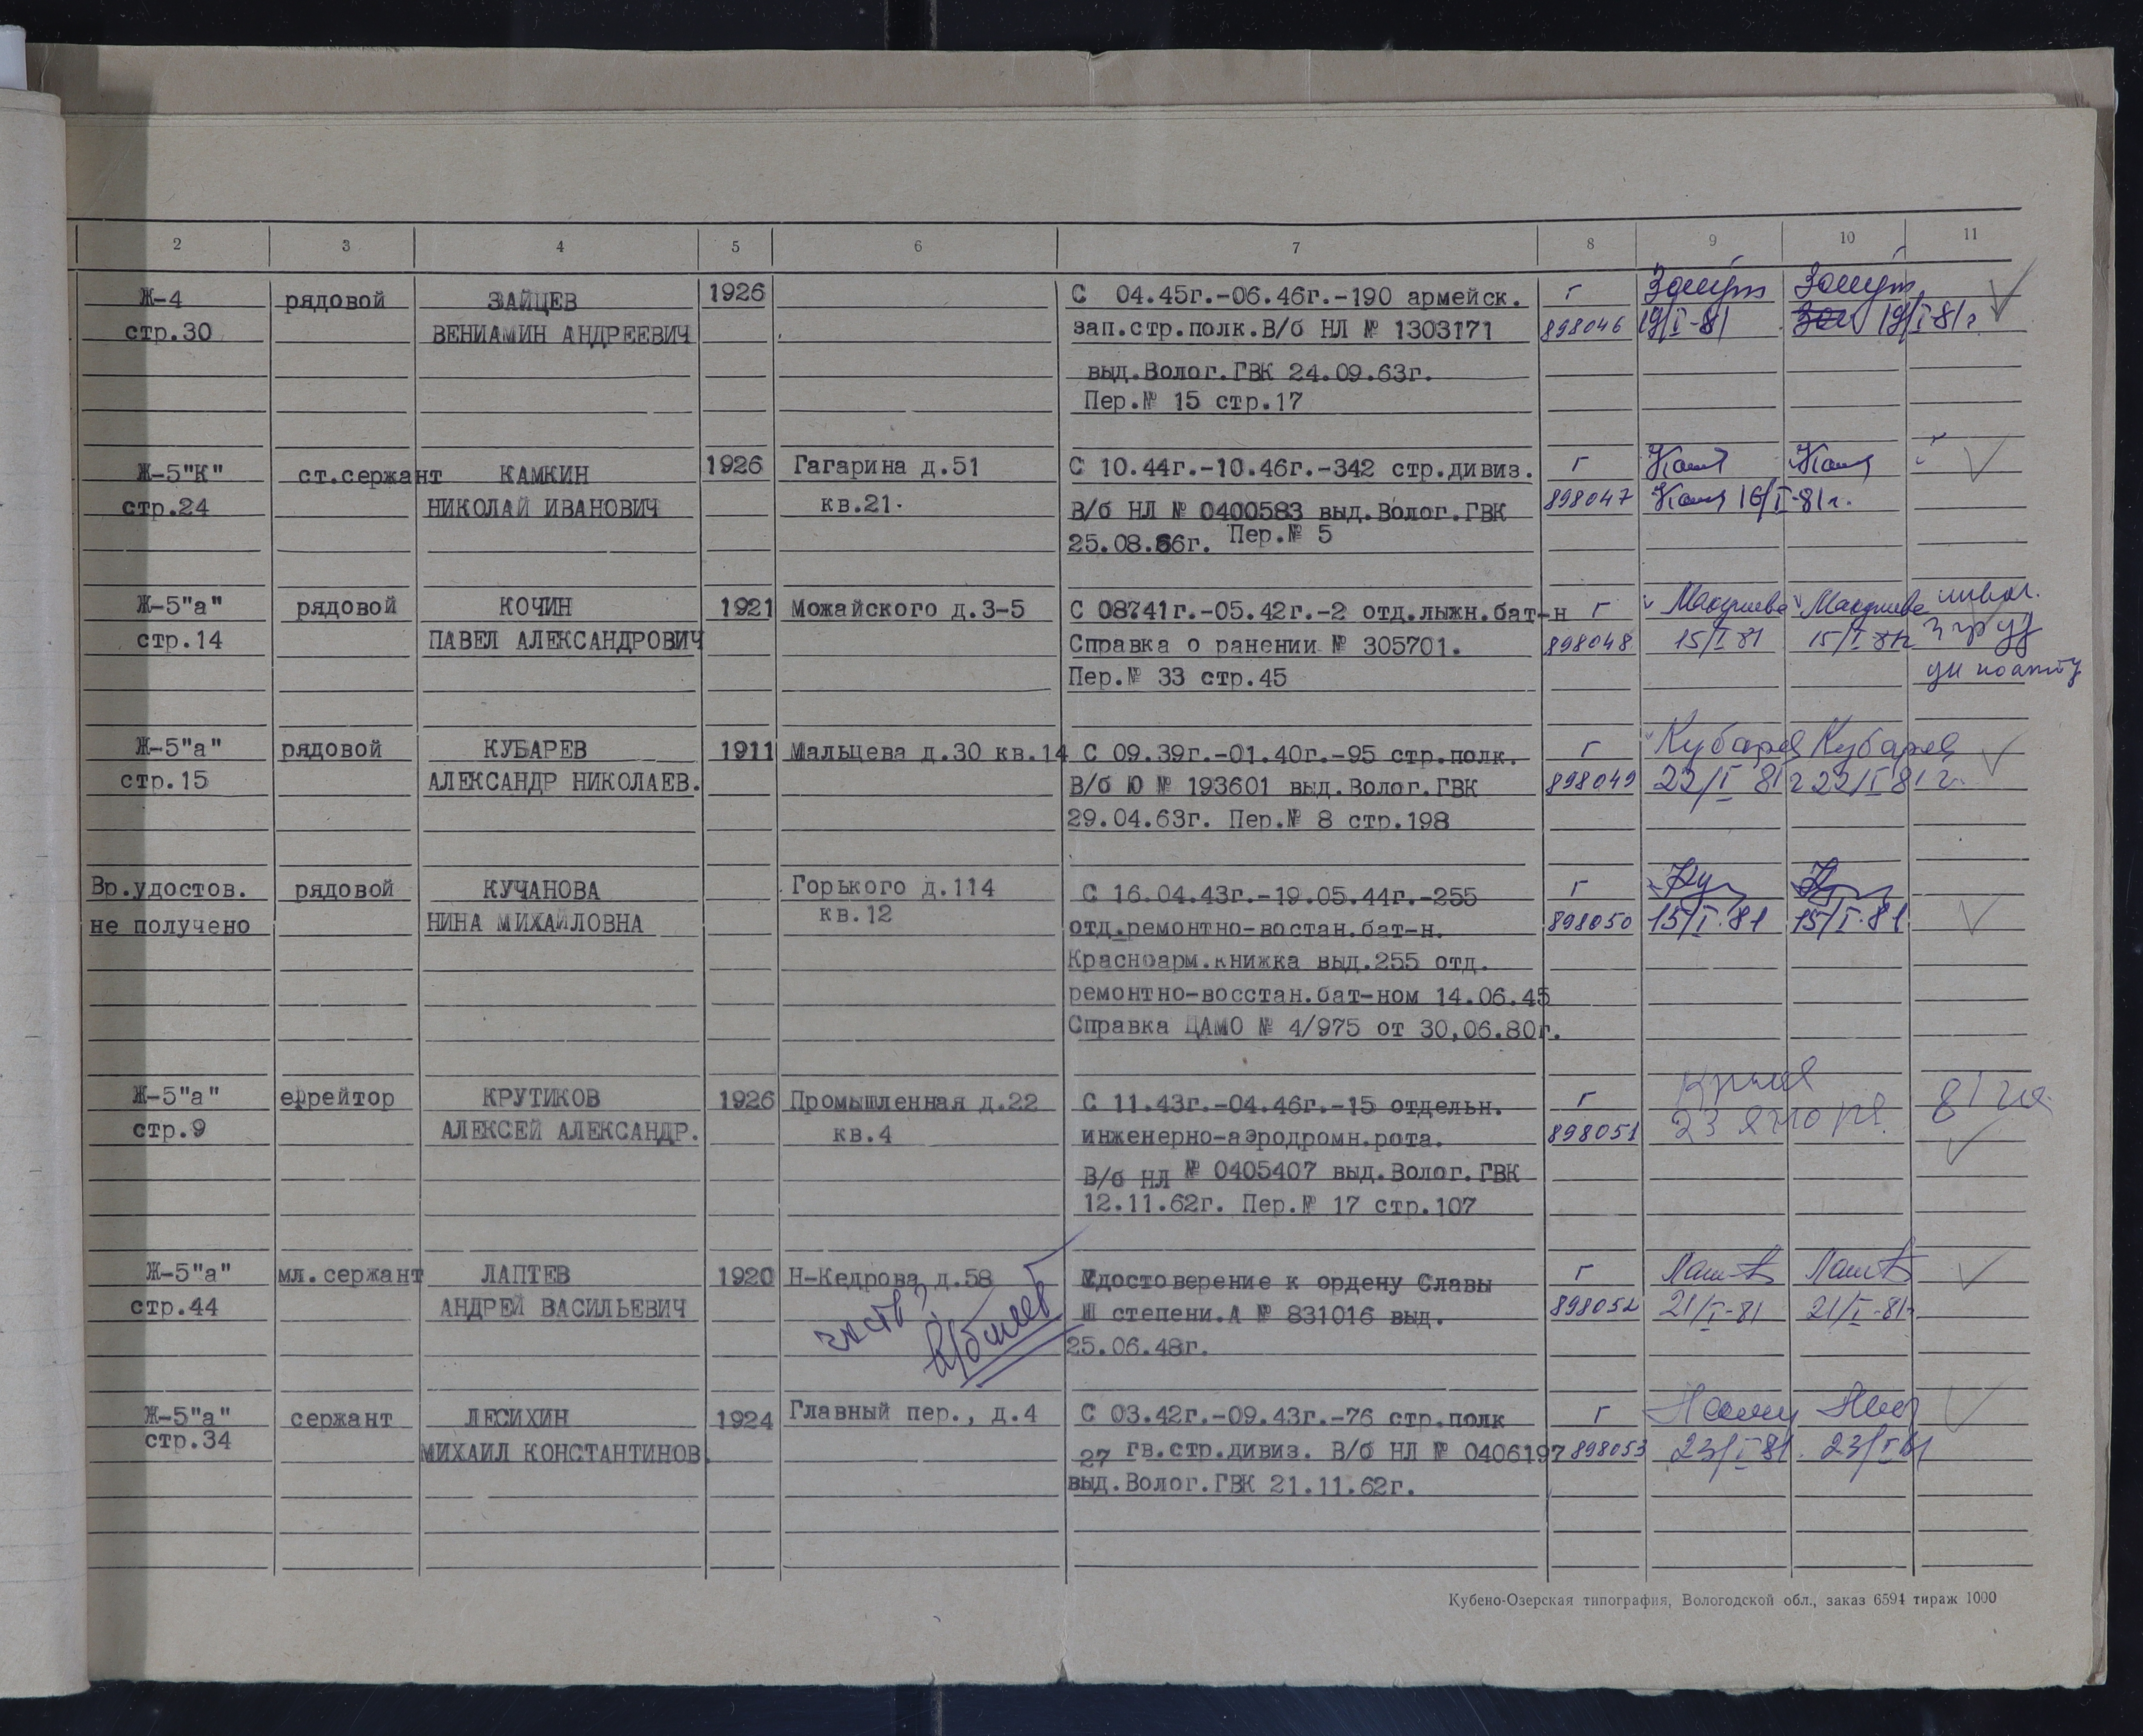 2 3 4 5 6 7 8 9 10 11
Ж-4 рядовой ЗАЙЦЕВ 1926 С 04.45г.-06.46г.-190 армейск. г
стр.30 ВЕНИАМИН АНДРЕЕВИЧ зап.стр.полк.В/б НЛ № 1303171 898046 19/I-81 19/I-81г.
выд.Волог.ГВК 24.09.63г.
Пер.№ 15 стр.17
Ж-5"К" ст.сержант КАМКИН 1926 Гагарина д.51 С 10.44г.-10.46г.-342 стр.дивиз. г
стр.24 НИКОЛАЙ ИВАНОВИЧ кв.21. В/б НЛ № 0400583 выд.Волог.ГВК 898047 16/I-81г.
25.08.66г. Пер.№ 5
Ж-5"а" рядовой КОЧИН 1921 Можайского д.3-5 С 08741г.-05.42г.-2 отд.лыжн.бат-н г
стр.14 ПАВЕЛ АЛЕКСАНДРОВИЧ Справка о ранении № 305701. 898048 15/I 81 15/I-81г
Пер.№ 33 стр.45
Ж-5"а" рядовой КУБАРЕВ 1911 Мальцева д.30 кв.14 С 09.39г.-01.40г.-95 стр.полк. г Кубарев Кубарев
стр.15 АЛЕКСАНДР НИКОЛАЕВ. В/б Ю № 193601 выд.Волог.ГВК 898049 22/I 81г 22/I 81г.
29.04.63г. Пер.№ 8 стр.198
Вр.удостов. рядовой КУЧАНОВА Горького д.114 С 16.04.43г.-19.05.44г.-255 г
не получено НИНА МИХАЙЛОВНА кв.12 отд.ремонтно-востан.бат-н. 898050 15/I.81 15/I.81
Красноарм.книжка выд.255 отд.
ремонтно-восстан.бат-ном 14.06.45
Справка ЦАМО № 4/975 от 30,06.80г.
Ж-5"а" ефрейтор КРУТИКОВ 1926 Промышленная д.22 С 11.43г.-04.46г.-15 отдельн. г
стр.9 АЛЕКСЕЙ АЛЕКСАНДР. кв.4 инженерно-аэродромн.рота. 898051 23 января
В/б НЛ № 0405407 выд.Волог.ГВК
12.11.62г. Пер.№ 17 стр.107
Ж-5"а" мл.сержант ЛАПТЕВ 1920 Н-Кедрова д.58 Удостоверение к ордену Славы г
стр.44 АНДРЕЙ ВАСИЛЬЕВИЧ Ш степени.А № 831016 выд. 898052 21/I-81 21/I-81г
25.06.48г.
Ж-5"а" сержант ЛЕСИХИН 1924 Главный пер., д.4 С 03.42г.-09.43г.-76 стр.полк г
стр.34 МИХАИЛ КОНСТАНТИНОВ. 27 гв.стр.дивиз. В/б НЛ № 0406197 898053 23/I 81. 23/I 81
выд.Волог.ГВК 21.11.62г.
Кубено-Озерская типография, Вологодской обл., заказ 6594 тираж 1000